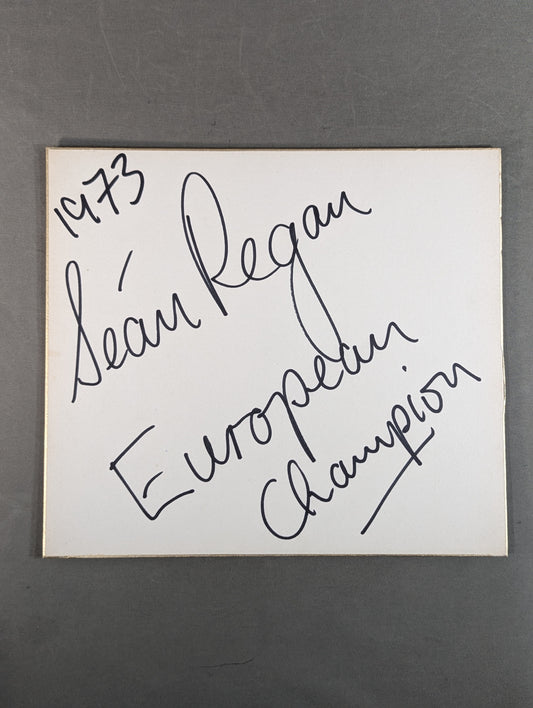 1973
Seán Regan
European
Champion